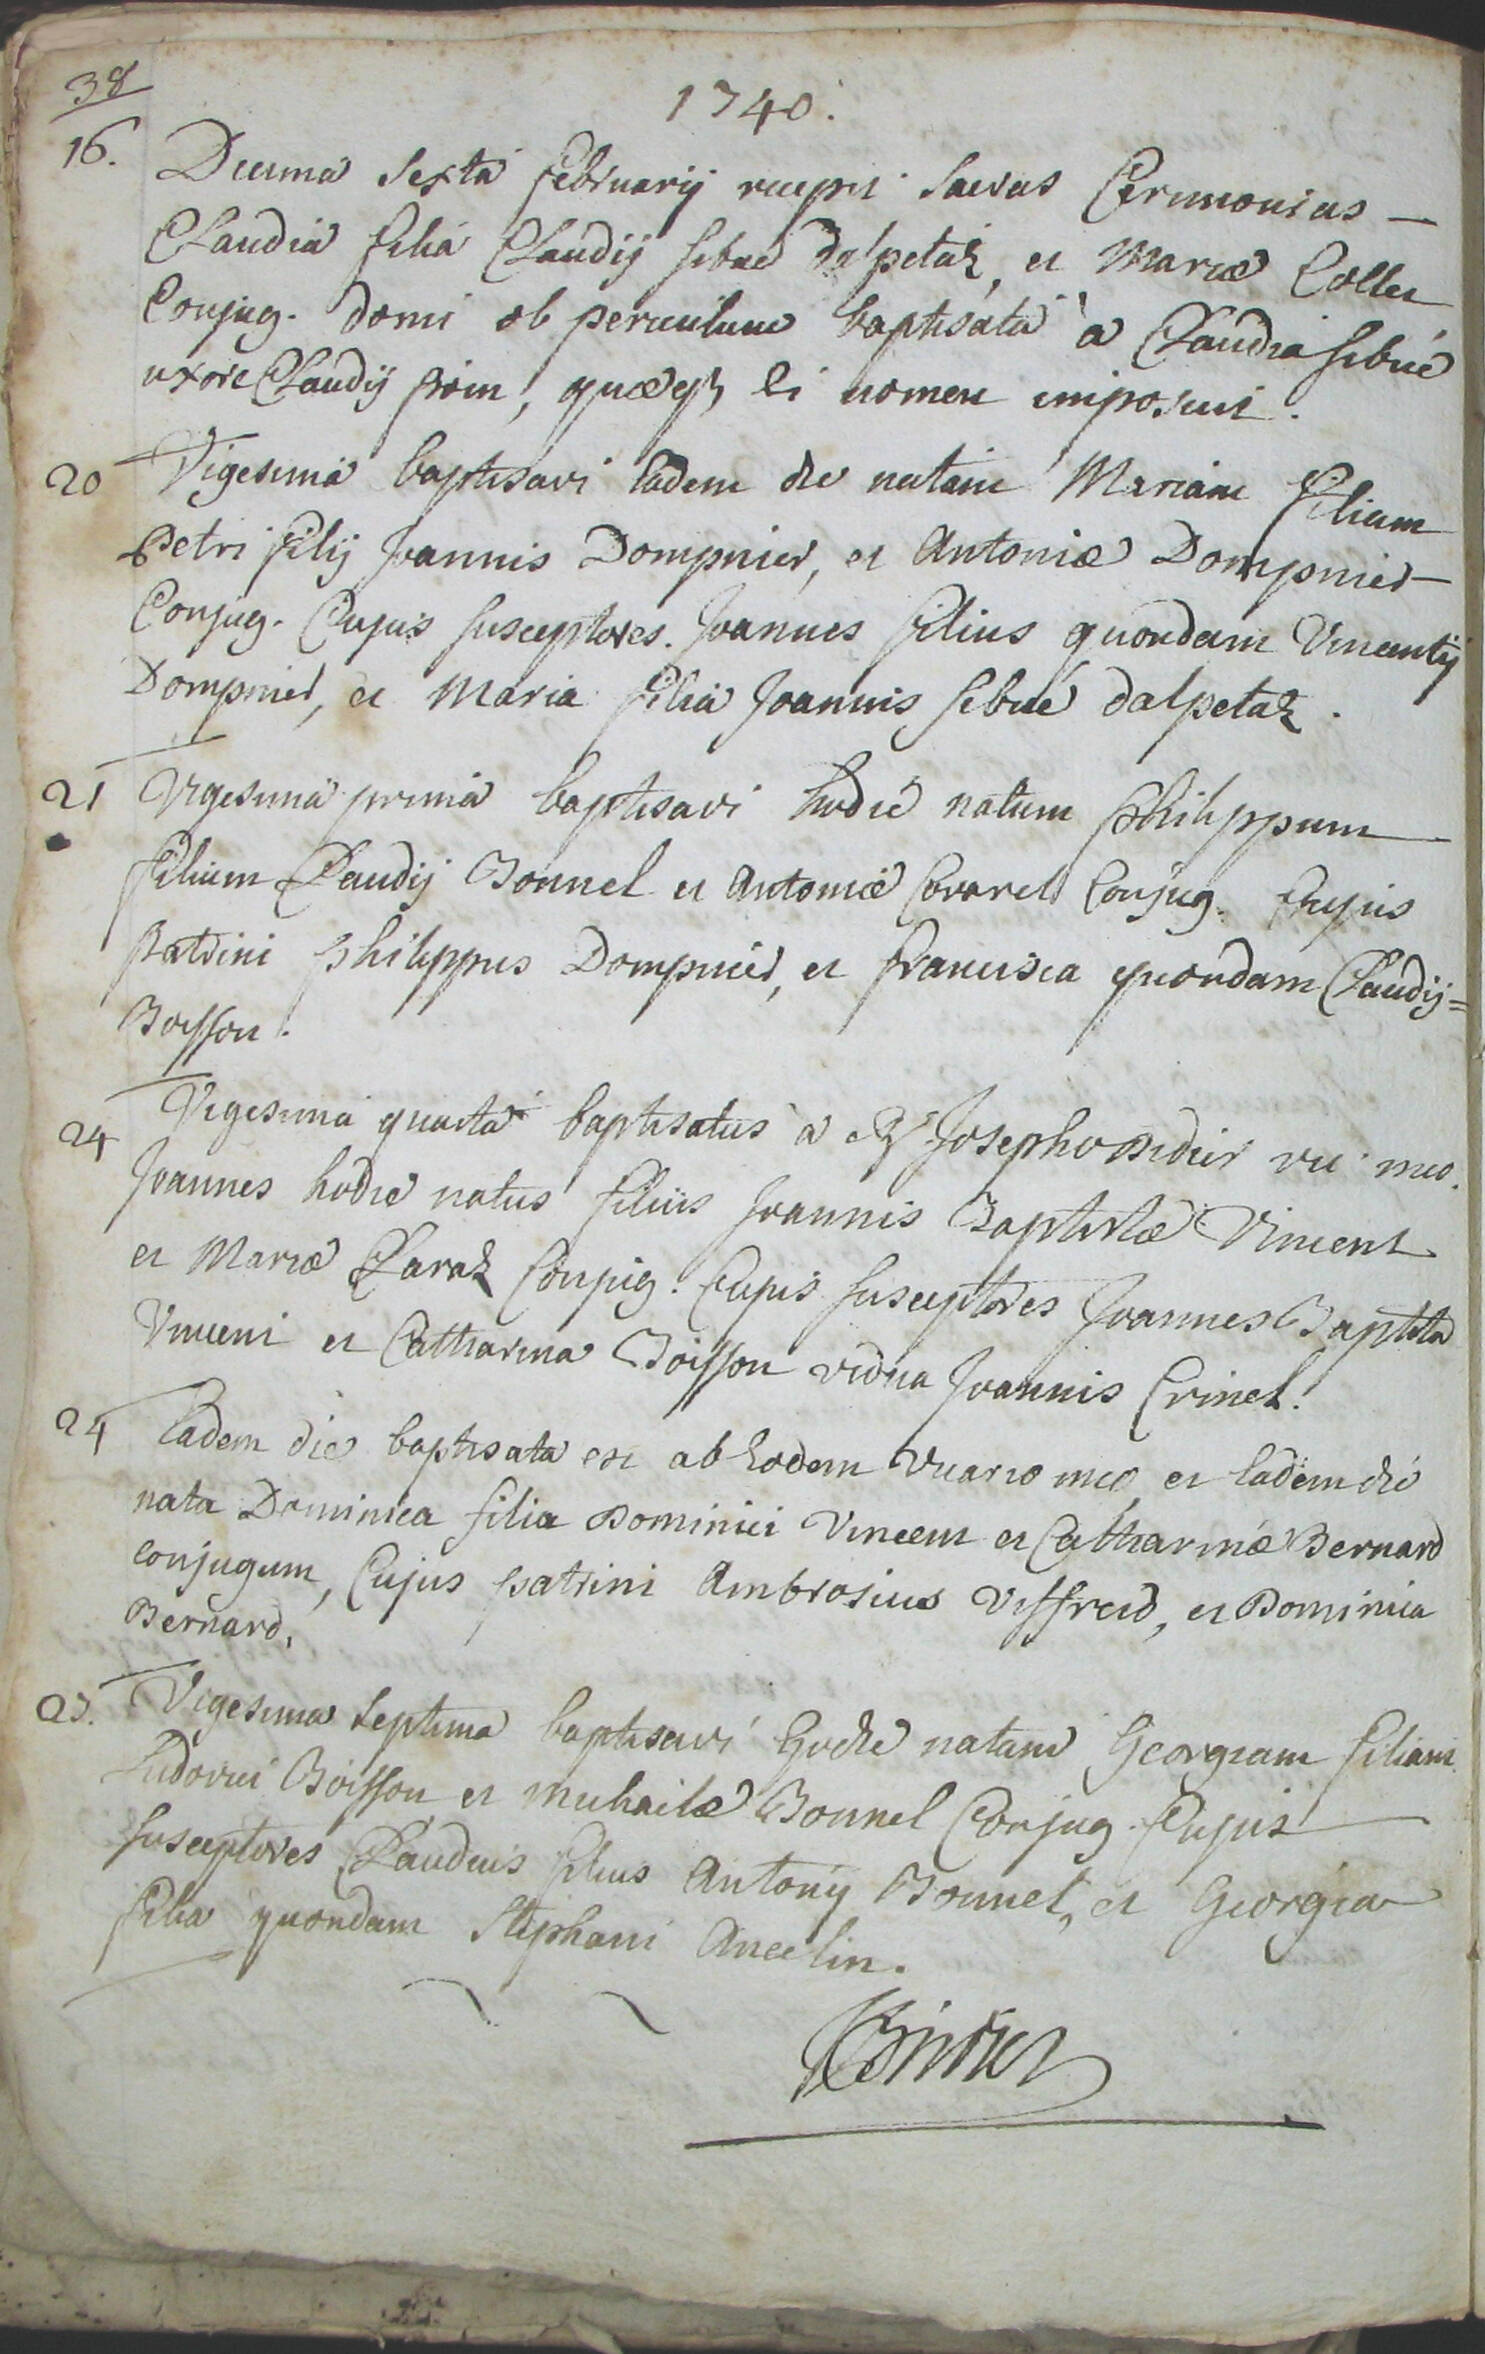 38
1740.
16. Decima sexta februarij recepit sacras Ceremonias —
Claudia filia Claudij sibué dalpetaz, et Mariæ Collet
Conjug. domi ob periculum baptisata a Claudia sibué
uxore Claudij , quæq3 ei nomen imposuit.
20 Vigesima baptisavi Eadem die natam Mariam filiam
Petri filij Joannis Dompnier, et Antoniæ Dompnier —
Conjug. Cujus susceptores. Joannes filius quondam Vincentij
Dompnier, et Maria filia Joannis sibué dalpetaz.
21 Vigesima prima baptisavi hodie natum Philippum
filium Claudij Bonnel et Antoniæ Covarel Conjug. Cujus
Patrini Philippus Dompnier, et francisca quondam Claudij =
Boisson.
24 Vigesima quarta baptisatus a Josepho Didier vic. meo.
Joannes hodie natus filius Joannis Baptistæ Vincent
et Mariæ Claraz Conjug. Cujus susceptores Joannes Baptista
Vincent et Catharina Boisson vidua Joannis Crinel.
24 Eadem die baptisata est ab Eodem Vicario meo, et Eadem die
nata Dominica filia Dominici Vincent et Catharinæ Bernard
conjugum, Cujus patrini Ambrosius Viffred, et Dominica
Bernard.
27. Vigesima septima baptisavi hodie natam Georgiam filiam
Ludovici Boisson et Michaelæ Bonnel Conjug. Cujus
susceptores Claudius filius Antonij Bonnel, et Georgia
filia quondam Stephani Ancelin.